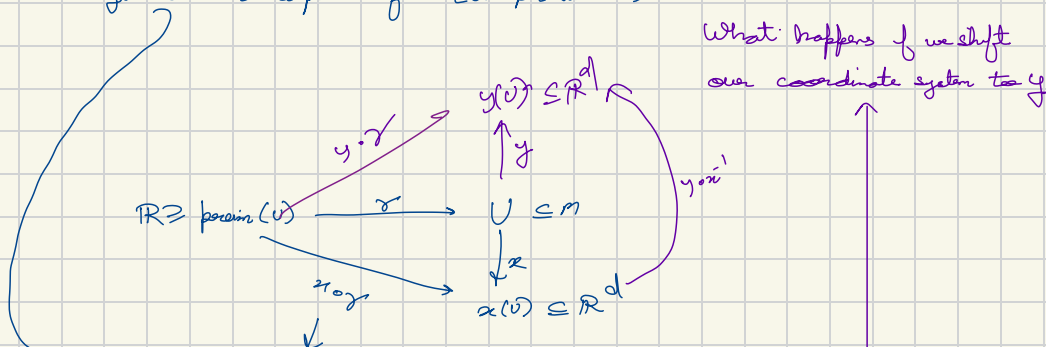 What happens if we shift
our coordinate system to y
y(U) ⊆ ℝᵈ
y∘γ
y
y∘x⁻¹
ℝ ⊇ preim(U)
γ
U ⊆ M
x
x∘γ
x(U) ⊆ ℝᵈ